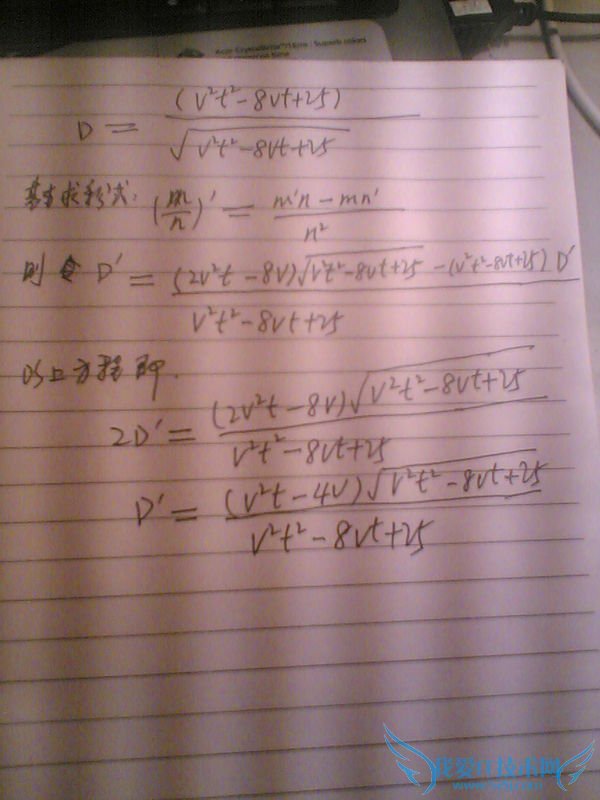 D = (v²t² - 8vt + 25) / √(v²t² - 8vt + 25)
基本求积式: (m/n)' = (m'n - mn') / n²
则 D' = ((2v²t - 8v)√(v²t² - 8vt + 25) - (v²t² - 8vt + 25) D') / (v²t² - 8vt + 25)
以上方程即.
2D' = (2v²t - 8v)√(v²t² - 8vt + 25) / (v²t² - 8vt + 25)
D' = (v²t - 4v)√(v²t² - 8vt + 25) / (v²t² - 8vt + 25)
我爱IT技术网